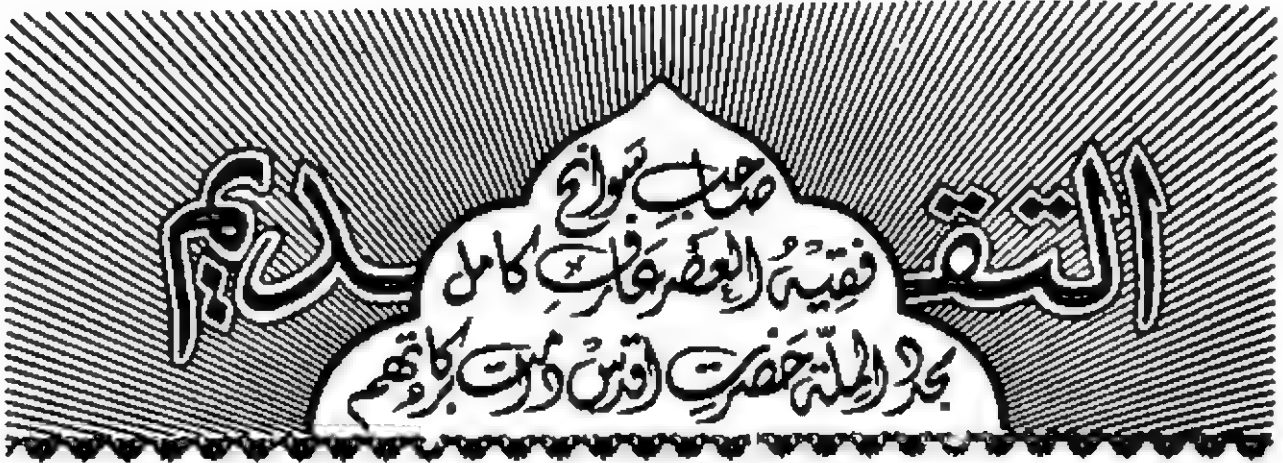 التقدیم
صاحبِ سوانح
فقیہُ العصر عارفِ کامل
مجدد الملّۃ حضرتِ اقدس دامت برکاتہم